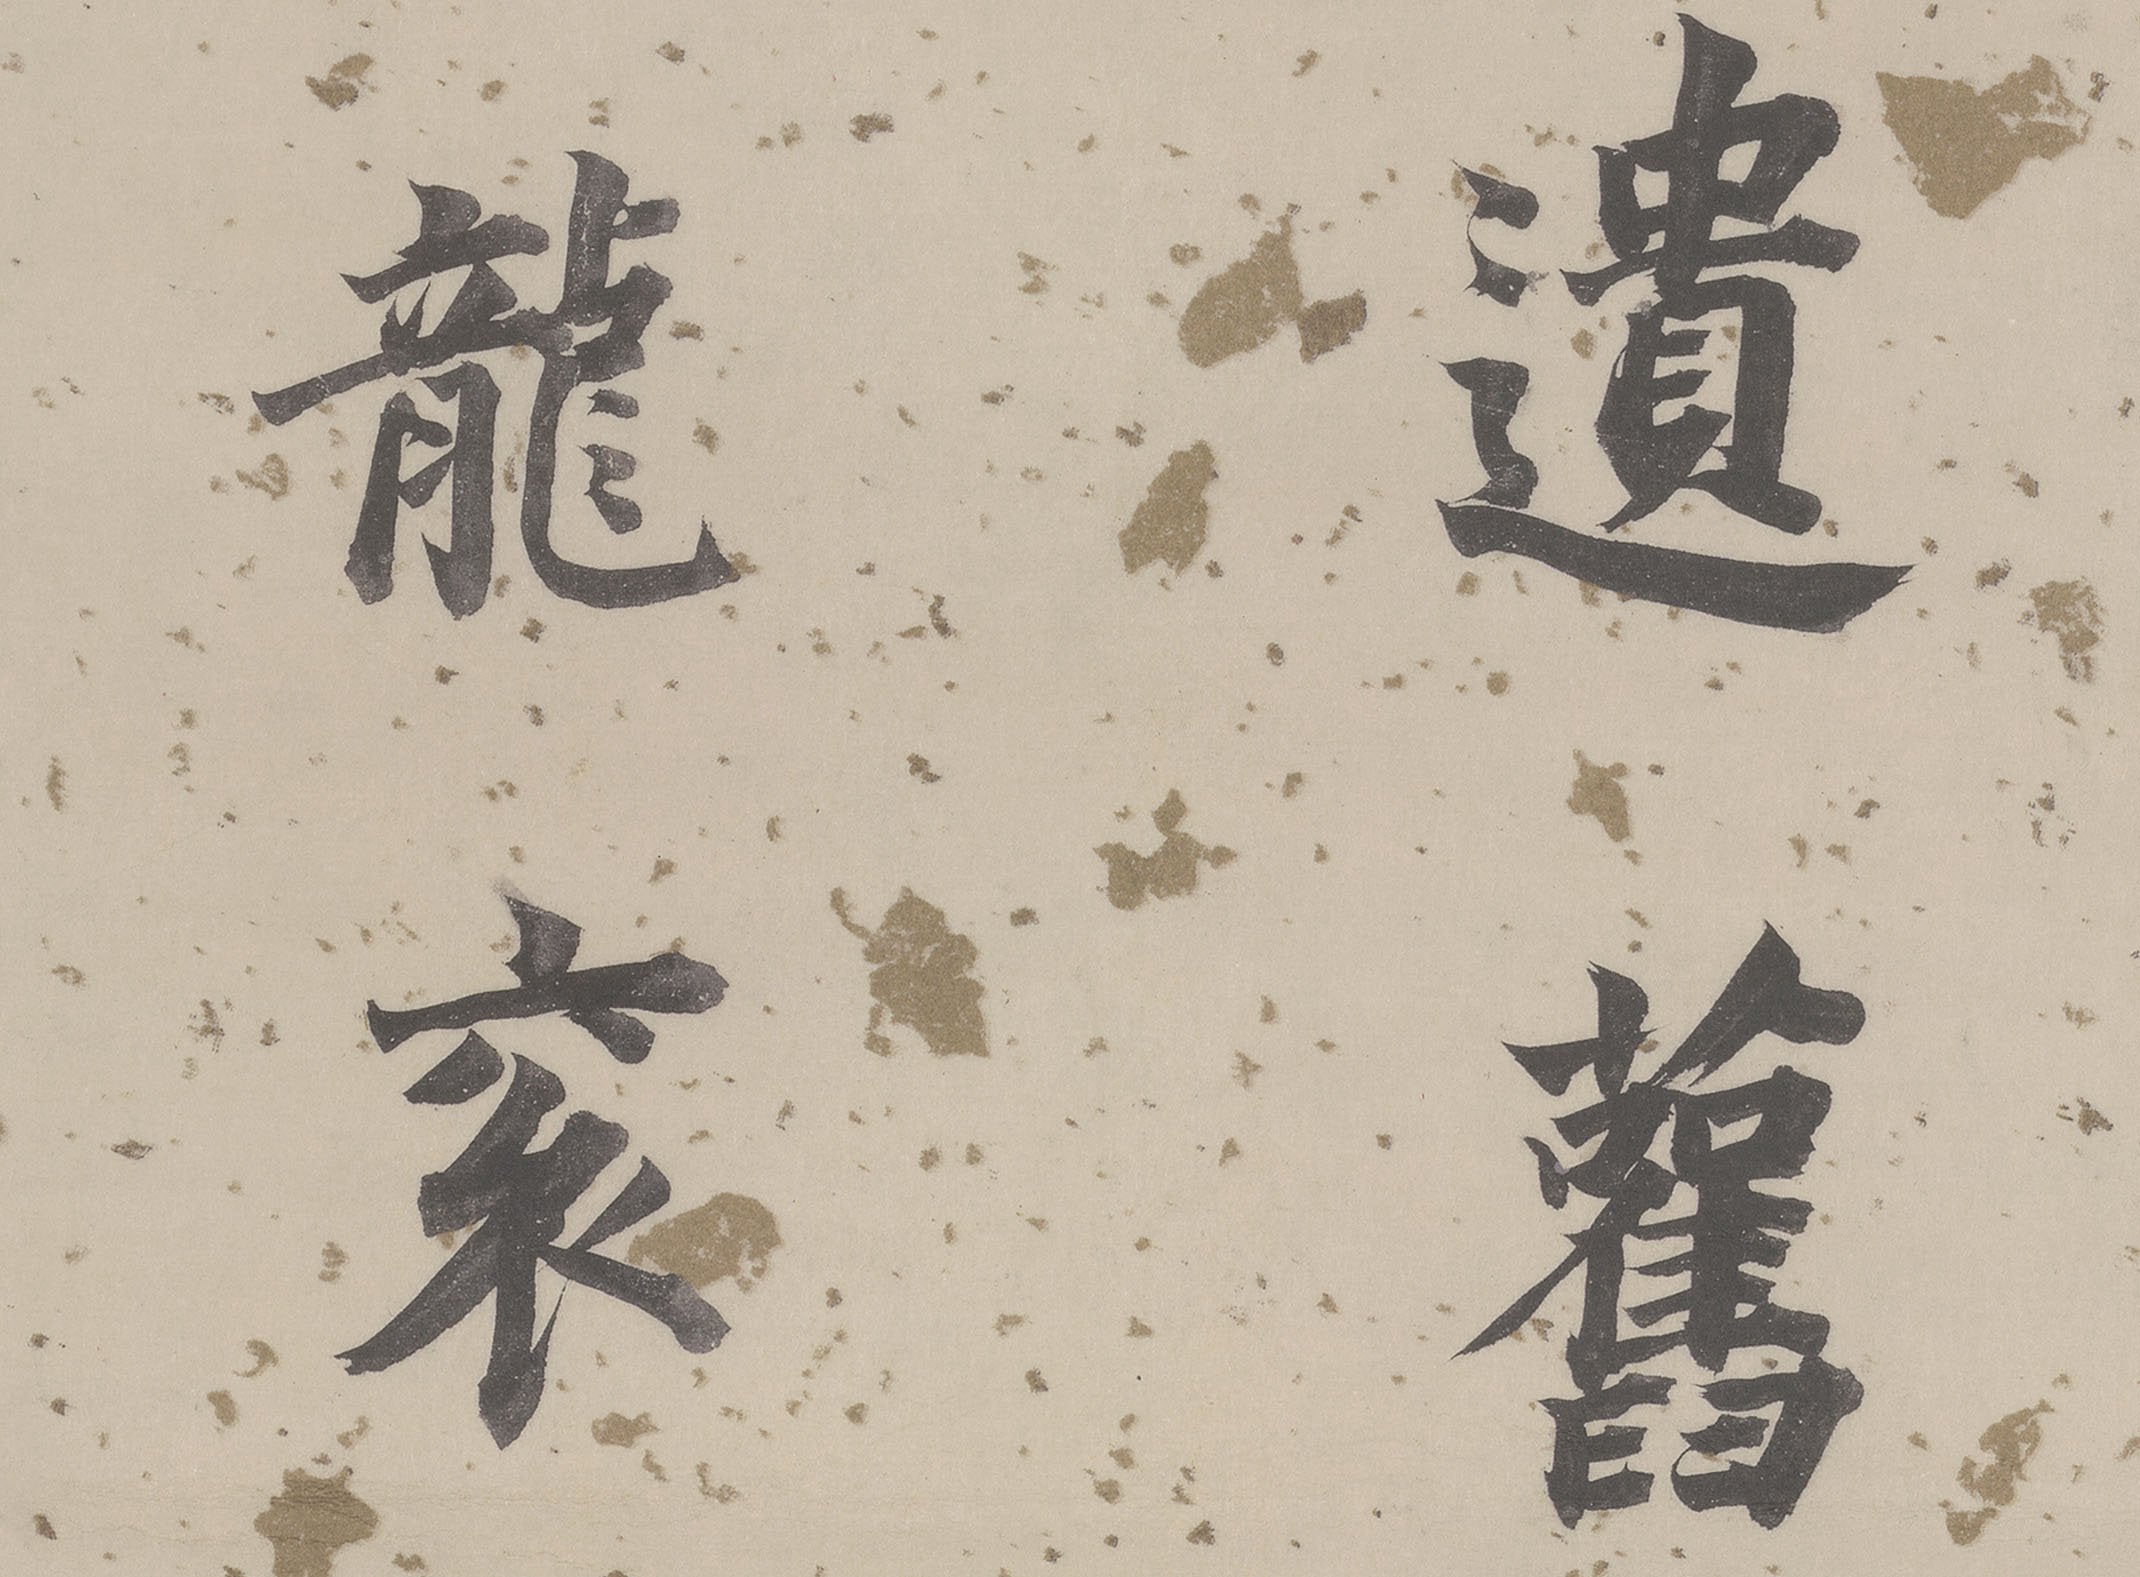 遺舊
龍衮